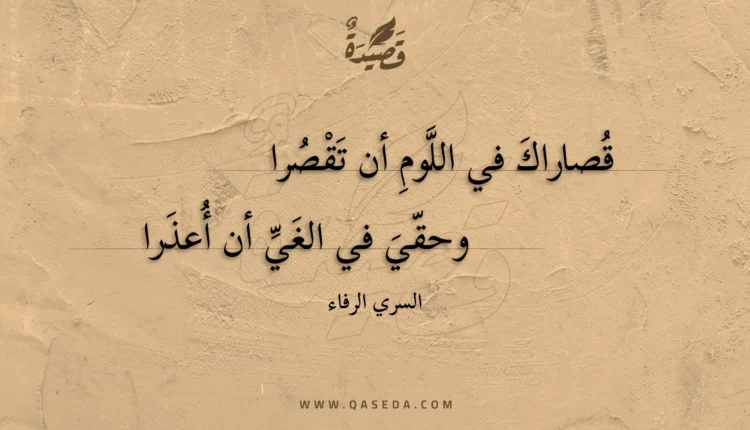 قَصِيْدَةٌ
قُصاراكَ في اللَّومِ أن تَقْصُرا
وحقّيَ في الغَيِّ أن أُعذَرا
السري الرفاء
WWW.QASEDA.COM